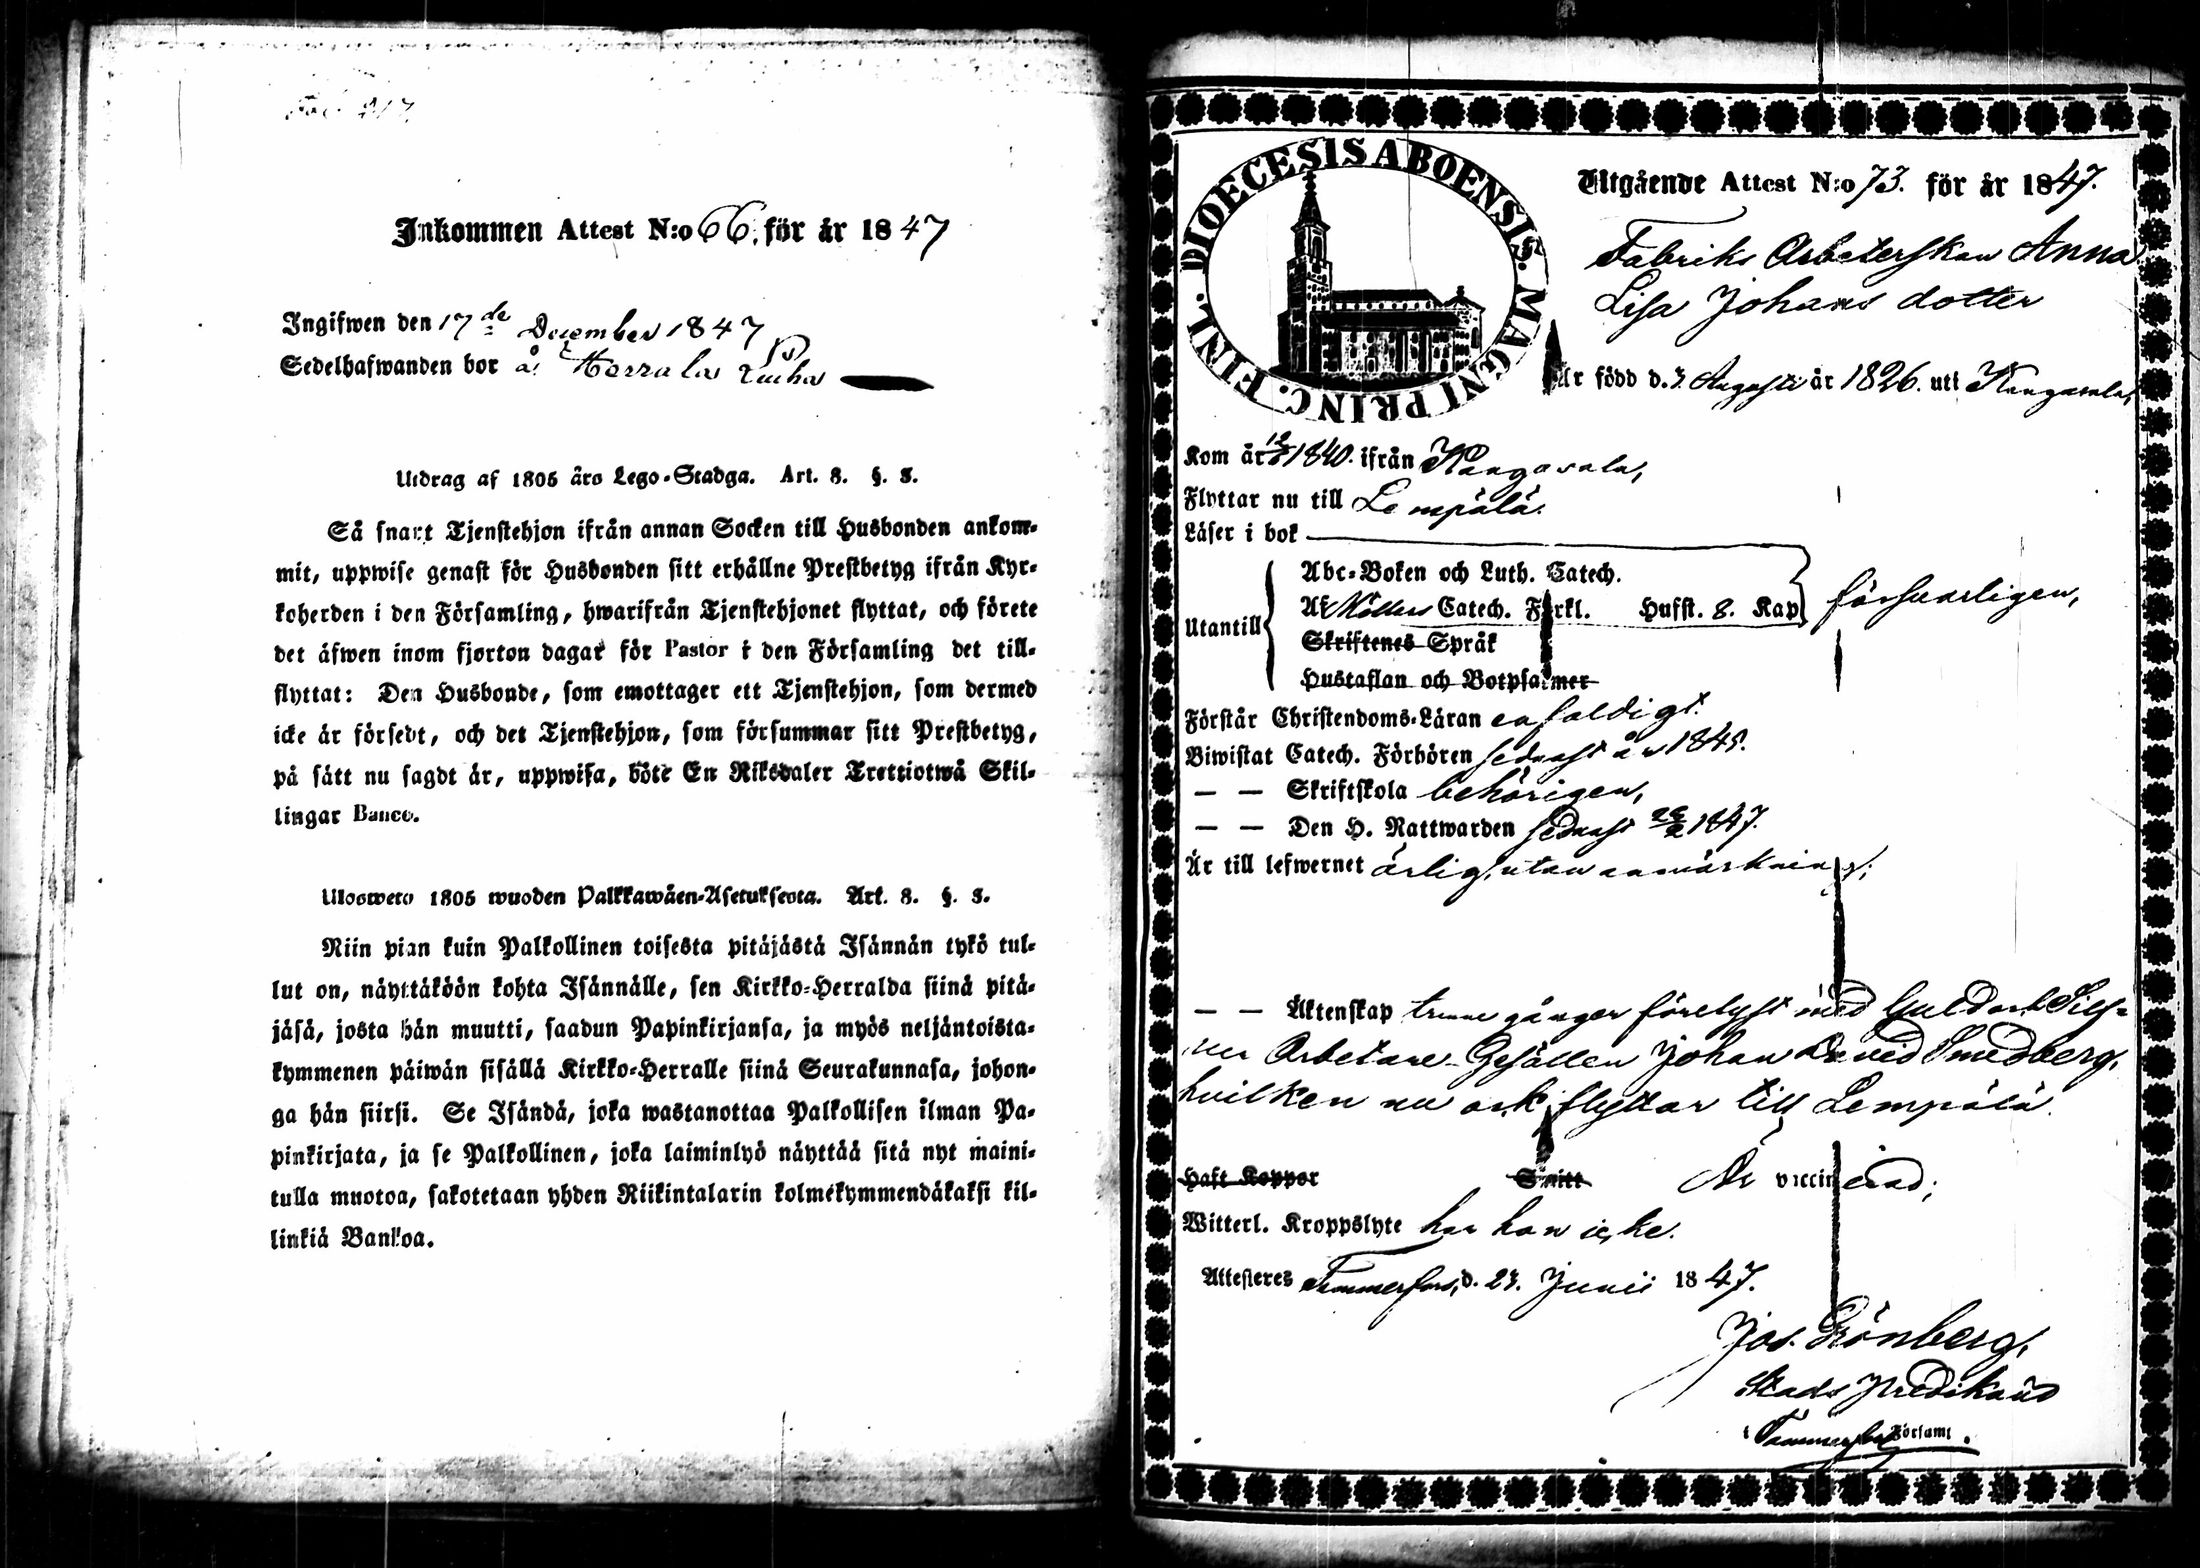 Fol. 217.
Inkommen Attest N:o 66. för år 1847
Ingifwen den 17de December 1847
Sedelhafwanden bor å Herrala
Utdrag af 1805 års Lego-Stadga. Art. 8. §. 3.
Så snart Tjenstehjon ifrån annan Socken till Husbonden ankom-
mit, uppwise genast för Husbonden sitt erhållne Prestbetyg ifrån Kyr-
koherden i den Församling, hwarifrån Tjenstehjonet flyttat, och förete
det äfwen inom fjorton dagar för Pastor i den Församling det till-
flyttat: Den Husbonde, som emottager ett Tjenstehjon, som dermed
icke är försedt, och det Tjenstehjon, som försummar sitt Prestbetyg,
på sätt nu sagdt är, uppwisa, böte En Riksdaler Trettiotwå Skil-
lingar Banco.
Ulosweto 1805 wuoden Palkkawäen-Asetuksesta. Art. 8. §. 3.
Niin pian kuin Palkollinen toisesta pitäjästä Isännän tykö tul-
lut on, näyttäköön kohta Isännälle, sen Kirkko-Herralda siinä pitä-
jäsä, josta hän muutti, saadun Papinkirjansa, ja myös neljäntoista-
kymmenen päiwän sisällä Kirkko-Herralle siinä Seurakunnasa, johon-
ga hän siirsi. Se Isändä, joka wastanottaa Palkollisen ilman Pa-
pinkirjata, ja se Palkollinen, joka laiminlyö näyttää sitä nyt maini-
tulla muotoa, sakotetaan yhden Riikintalarin kolmekymmendäkaksi kil-
linkiä Bankoa.
DIOECESIS ABOENSIS. MAGNI PRINC. FINL.
Utgående Attest N:o 73. för år 1847.
Fabriks Arbeterskan Anna
Lisa Johans dotter
Är född d. 3. Augusti år 1826. uti Kangasala,
Kom år 1840. ifrån Kangasala,
Flyttar nu till Lempälä.
Läser i bok
Utantill
Abc-Boken och Luth. Catech.
Af Möllers Catech. Förkl. Husst. 8. Kap
försvarligen,
Skriftenes Språk
Hustaflan och Botpsalmer
Förstår Christendoms-Läran enfaldigt.
Biwistat Catech. Förhören sednast år 1845.
— — Skriftskola behörigen,
— — Den H. Nattwarden sednast 1847.
Är till lefwernet ärlig, utan anmärkning;
— — Äktenskap trenne gånger förelyst med Guld och Silf-
ver Arbetare-Gesällen Johan David Smedberg,
hvilken nu ock flyttar till Lempälä.
Haft Koppor Smitt Är vaccinerad;
Witterl. Kroppslyte har hon icke.
Attesteres Tammerfors, d. 23. Junii 1847.
Jos. Grönberg,
Stads Predikand
i Tammerfors Församl.